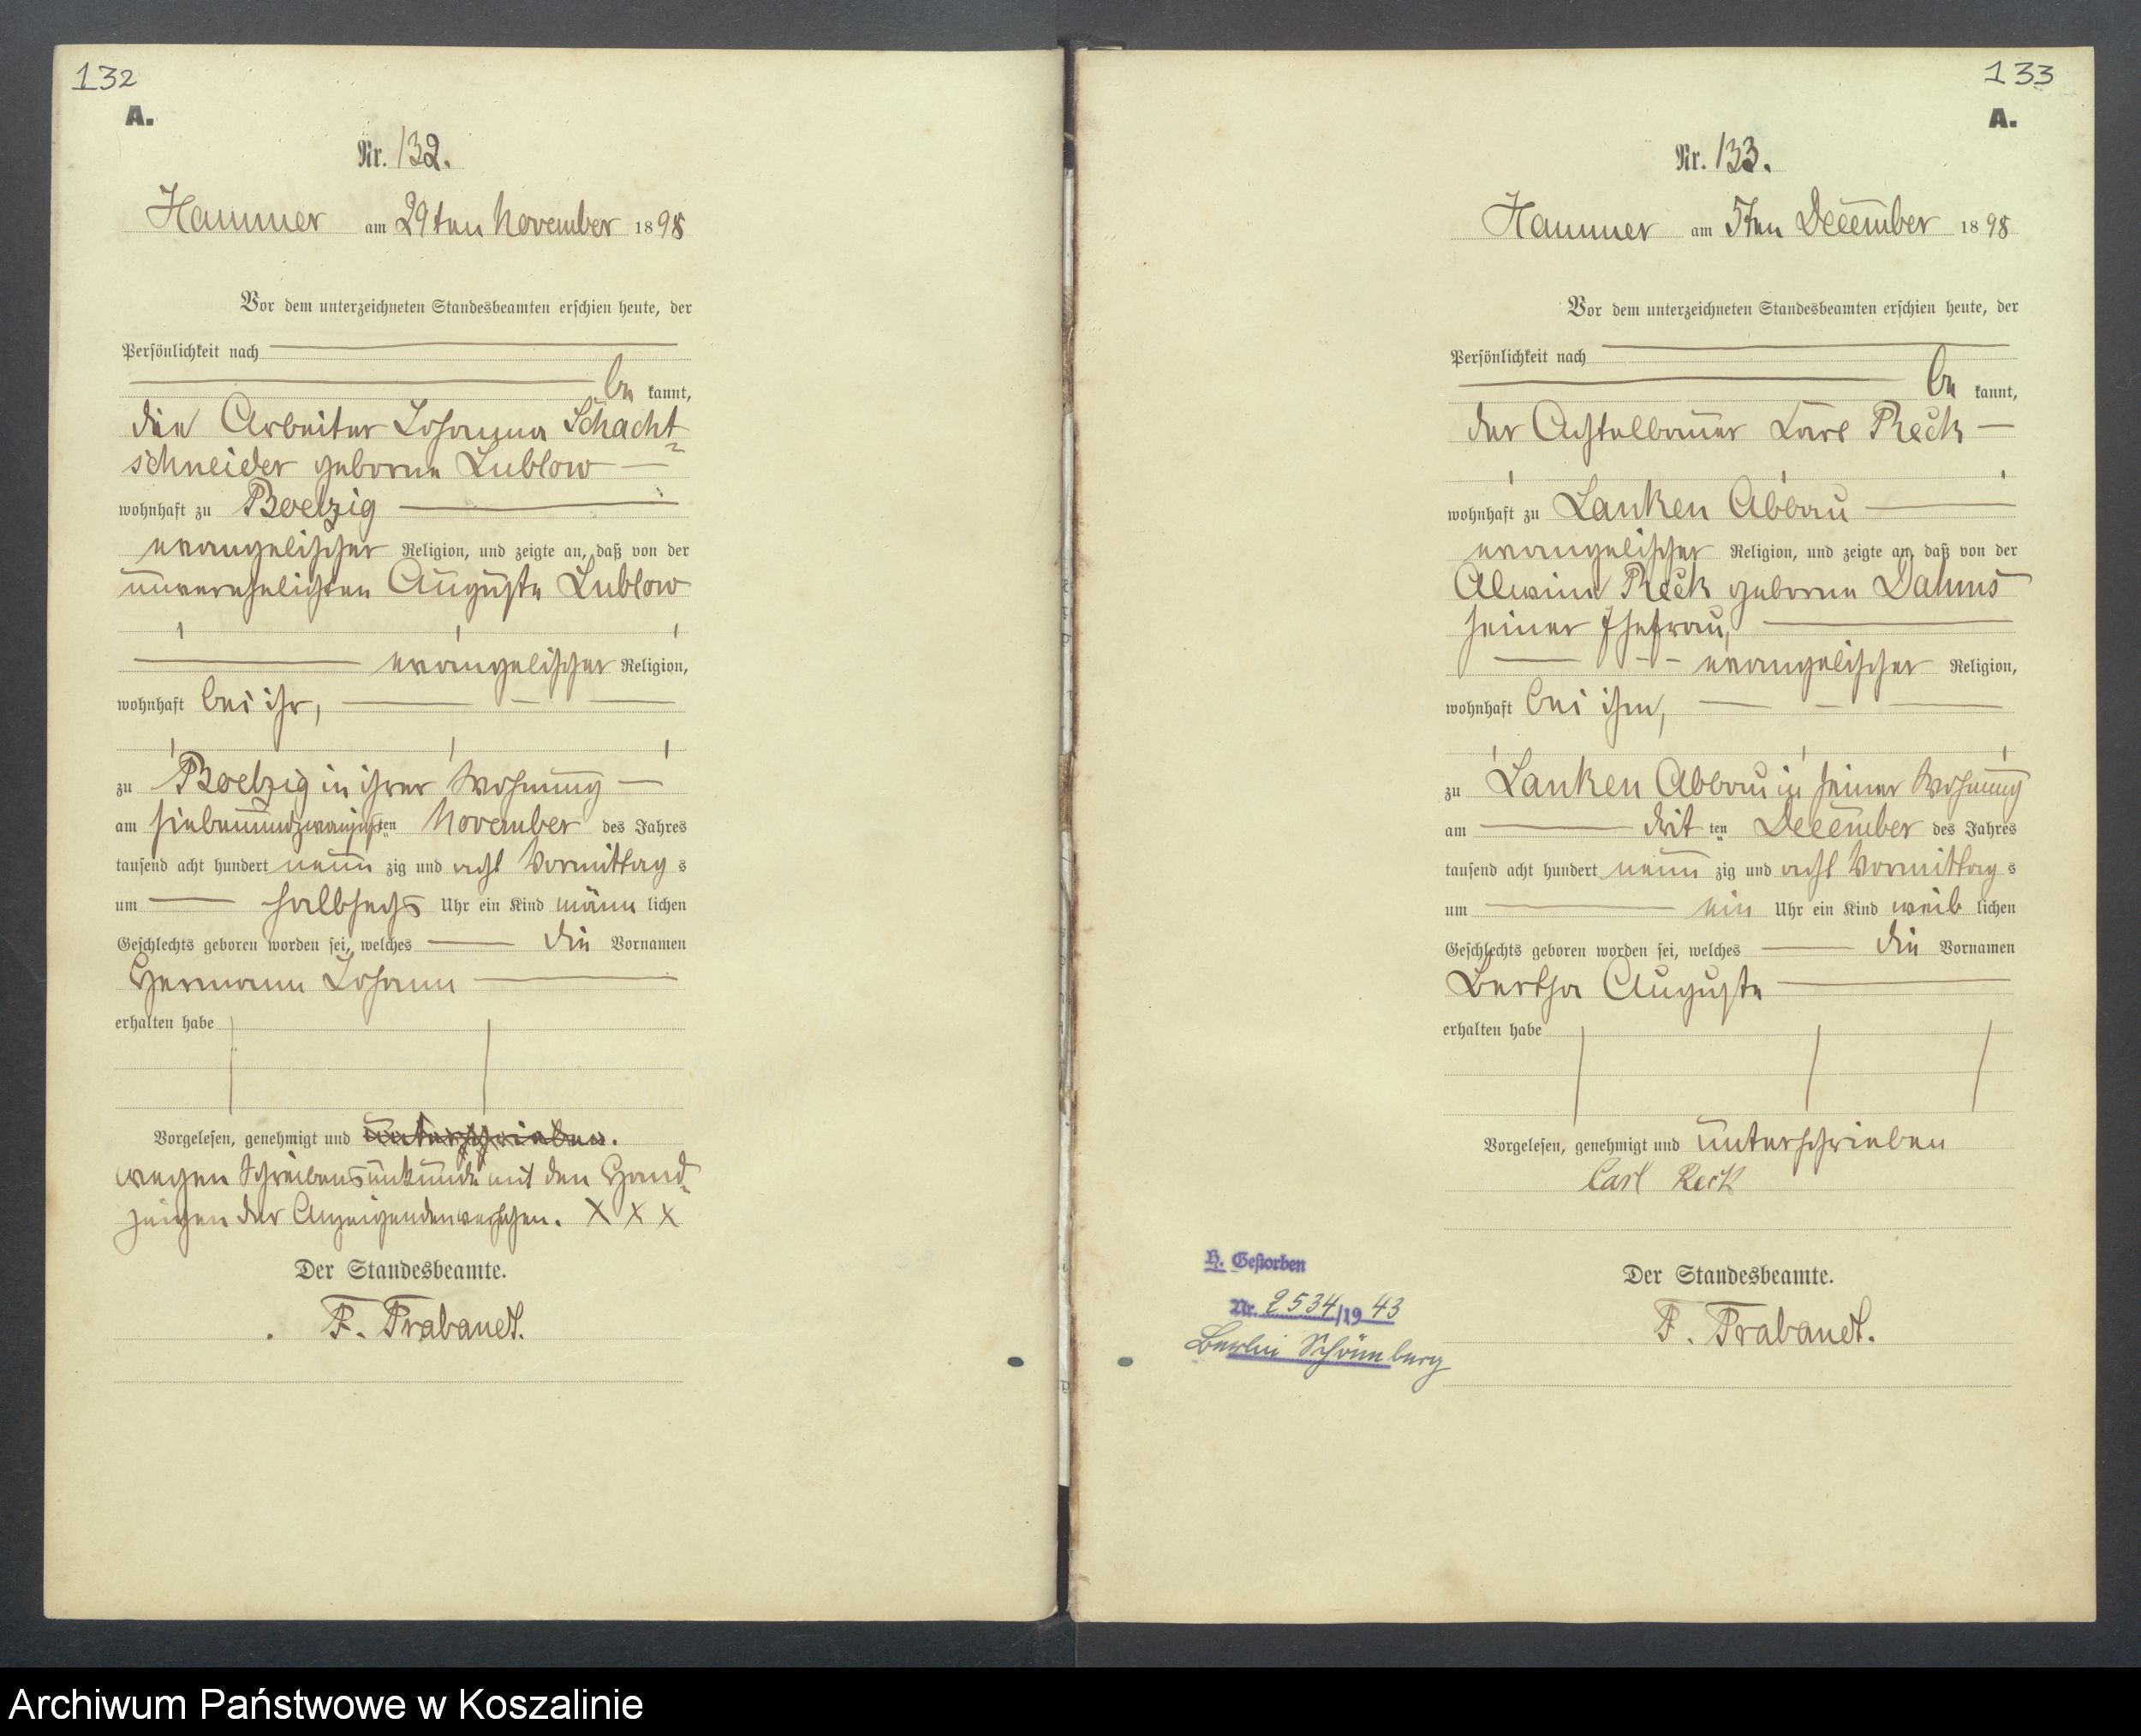 132
A.
Nr. 132.
Hammer am 29ten November 1898
Vor dem unterzeichneten Standesbeamten erschien heute, der
Persönlichkeit nach
be kannt,
die Arbeiter Johanna Schacht-
schneider geborne Lublow
wohnhaft zu Boelzig
evangelischer Religion, und zeigte an, daß von der
unverehelichten Auguste Lublow
evangelischer Religion,
wohnhaft bei ihr,
zu Boelzig in ihrer Wohnung
am siebenundzwanzigsten November des Jahres
tausend acht hundert neun zig und acht Vormittag s
um halbsechs Uhr ein Kind männ lichen
Geschlechts geboren worden sei, welches die Vornamen
Hermann Johann
erhalten habe
Vorgelesen, genehmigt und unterschrieben.
wegen Schreibensunkunde mit den Hand-
zeichen der Anzeigenden versehen. X X X
Der Standesbeamte.
F. Trabandt.
133
A.
Nr. 133.
Hammer am 5ten December 1898
Vor dem unterzeichneten Standesbeamten erschien heute, der
Persönlichkeit nach
be kannt,
der Achtelbauer Carl Reck
wohnhaft zu Lanken Abbau
evangelischer Religion, und zeigte an, daß von der
Alwine Reck geborne Dahms
seiner Ehefrau,
evangelischer Religion,
wohnhaft bei ihm,
zu Lanken Abbau in seiner Wohnung
am drit ten December des Jahres
tausend acht hundert neun zig und acht Vormittag s
um ein Uhr ein Kind weib lichen
Geschlechts geboren worden sei, welches die Vornamen
Bertha Auguste
erhalten habe
Vorgelesen, genehmigt und unterschrieben
Carl Reck
Der Standesbeamte.
F. Trabandt.
H. Gestorben
Nr. 2534/1943
Berlin Schöneberg
Archiwum Państwowe w Koszalinie